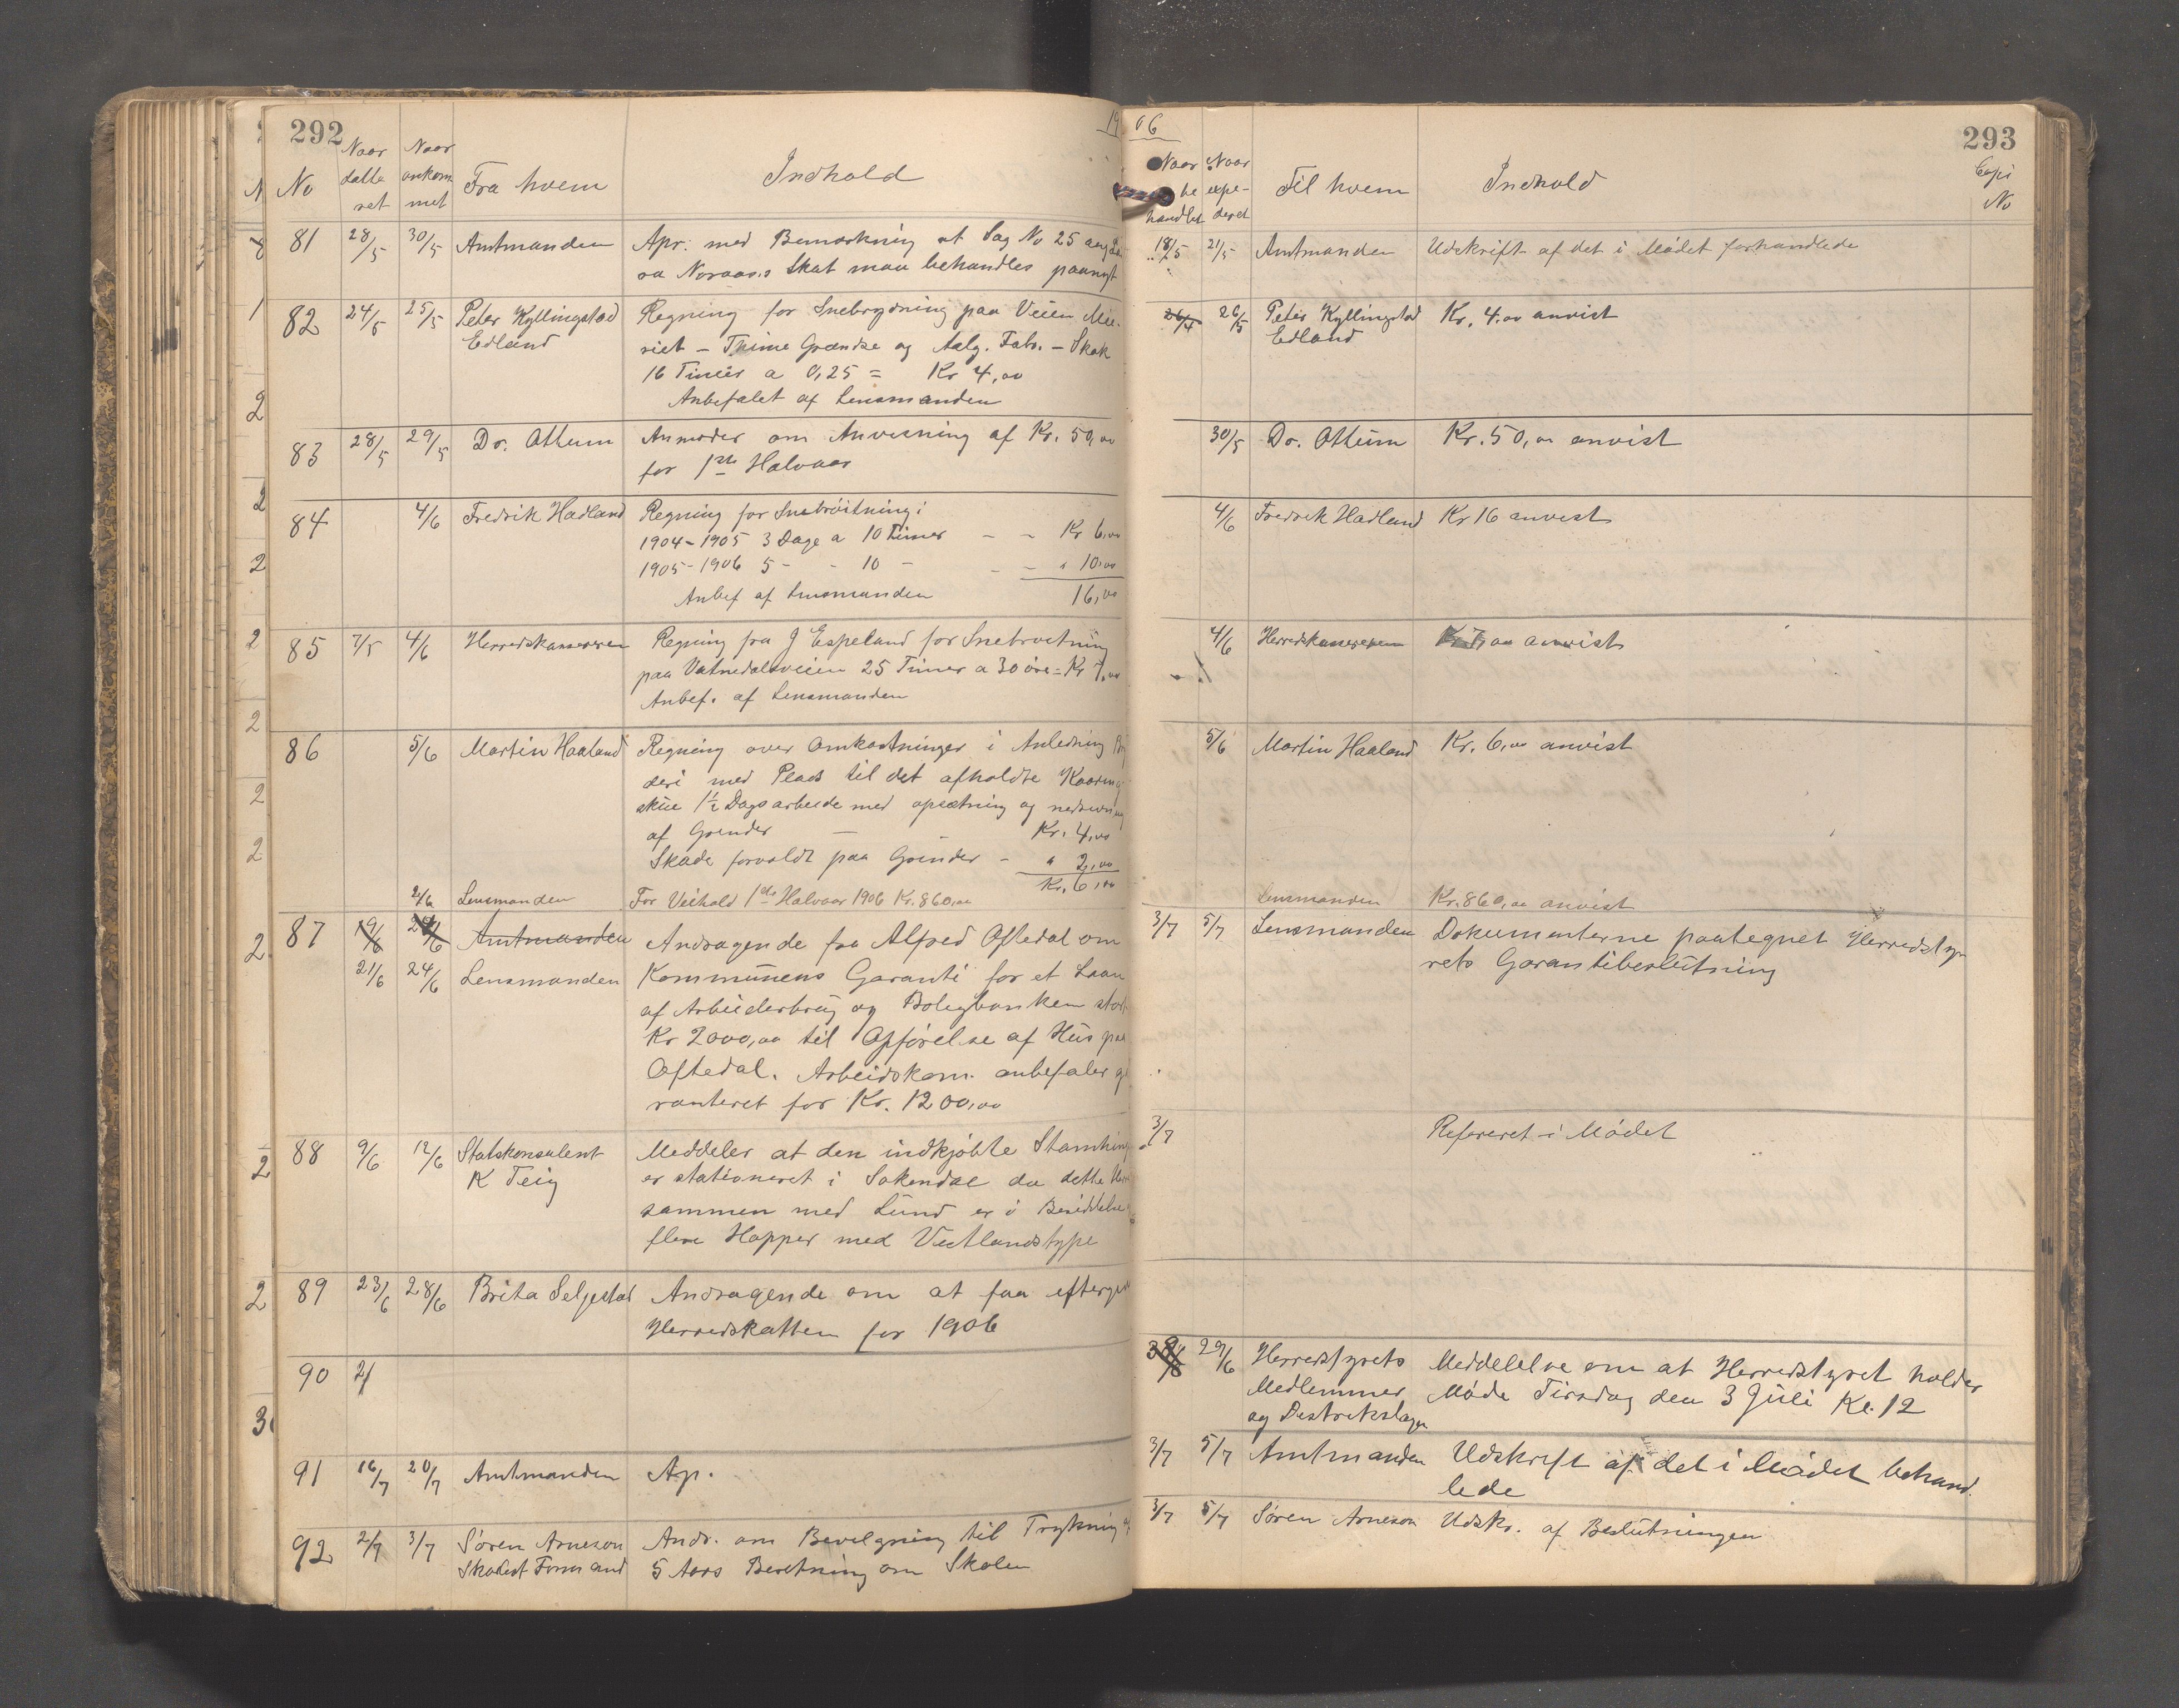 292
1906
No
Naar datte ret
Naar ankom met
Fra hvem
Indhold
81 28/5 30/5 Amtmanden Apr. med Bemærkning at Sag No 25 ang
Skat maa behandles paanyt
82 24/5 25/5 Peter Kyllingstad Regning for Snebrydning paa Veien Mei-
Edland riet – Thime Grændse og Aalg. Fabr. – Skak
16 Timer a 0,25 = Kr 4,00
Anbefalet af Lensmanden
83 28/5 29/5 Dr. Ottum Anmoder om Anvisning af Kr. 50,00
for 1ste Halvaar
84 4/6 Fredrik Hadland Regning for Snebrøitning:
1904–1905 3 Dage a 10 Timer – – Kr 6,00
1905–1906 5 – – 10 – – – " 10,00
Anbef af Lensmanden 16,00
85 7/5 4/6 Herredskassereren Regning fra J Espeland for Snebrøitning
paa Vatnedalsveien 25 Timer a 30 øre = Kr 7,00
Anbef. af Lensmanden
86 5/6 Martin Haaland Regning over Omkostninger i Anledning
deri med Plads til det afholdte Kaaring
skue 1½ Dags arbeide med opsætning og
af Grinder – – Kr. 4,00
Skade forvoldt paa Grinder – " 2,00
Kr. 6,00
2/6 Lensmanden For Veihold 1ste Halvaar 1906 Kr. 860,00
87 19/6 Amtmanden Andragende fra Alfred Oftedal om
21/6 24/6 Lensmanden Kommunens Garanti for et Laan
af Arbeiderbrug og Boligbanken stort
Kr 2000,00 til Opførelse af Hus paa
Oftedal. Arbeidskom. anbefaler ga
ranteret for Kr. 1200,00
88 9/6 12/6 Statskonsulent Meddeler at den indkjøbte Stamhing
K Teig er stationeret i Sokendal da dette
sammen med Lund er i Besiddelse
flere Hopper med Vestlandstype
89 23/6 28/6 Brita Selgestad Andragende om at faa
Herredskatten for 1906
90 2/
91 16/7 20/7 Amtmanden Ap.
92 2/7 3/7 Søren Arneson Andr. om Bevilgning til Trykning af
Skolest Formand 5 Aars Beretning om Skolen
293
Naar be handlet
Naar expe- deret
Til hvem
Indhold
Copi No
18/5 21/5 Amtmanden Udskrift af det i Mødet forhandlede
26/5 Peter Kyllingstad Kr. 4,00 anvist
Edland
30/5 Dr. Ottum Kr. 50,00 anvist
4/6 Fredrik Hadland Kr 16 anvist
4/6 Herredskassereren Kr 7,00 anvist
5/6 Martin Haaland Kr. 6,00 anvist
Lensmanden Kr. 860,00 anvist
3/7 5/7 Lensmanden Dokumenterne paategnet Herredsty
rets Garantibeslutning
3/7 Refereret i Mødet
29/6 Herredstyrets Meddelelse om at Herredstyret holder
Medlemmer Møde Tirsdag den 3 Juli Kl. 12
og
3/7 5/7 Amtmanden Udskrift af det i Mødet behand
lede
3/7 5/7 Søren Arneson Udskr. af Beslutningen